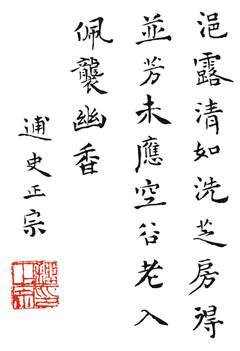 浥露清如洗芝房得
並芳未應空谷老入
佩襲幽香
逋史正宗